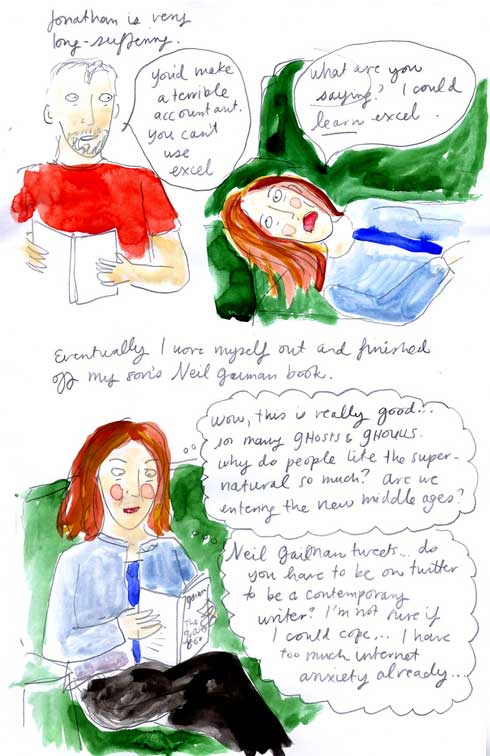 Jonathan is very
long-suffering.
you'd make
a terrible
accountant.
you can't
use
excel
what are you
saying? I could
learn excel.
Eventually I wore myself out and finished
off my son's Neil Gaiman book.
Wow, this is really good...
so many GHOSTS & GHOULLS.
why do people like the super-
natural so much? Are we
entering the new middle ages?
Neil Gaiman tweets... do
you have to be on twitter
to be a contemporary
writer? I'm not sure if
I could cope... I have
too much internet
anxiety already...
gaiman
The